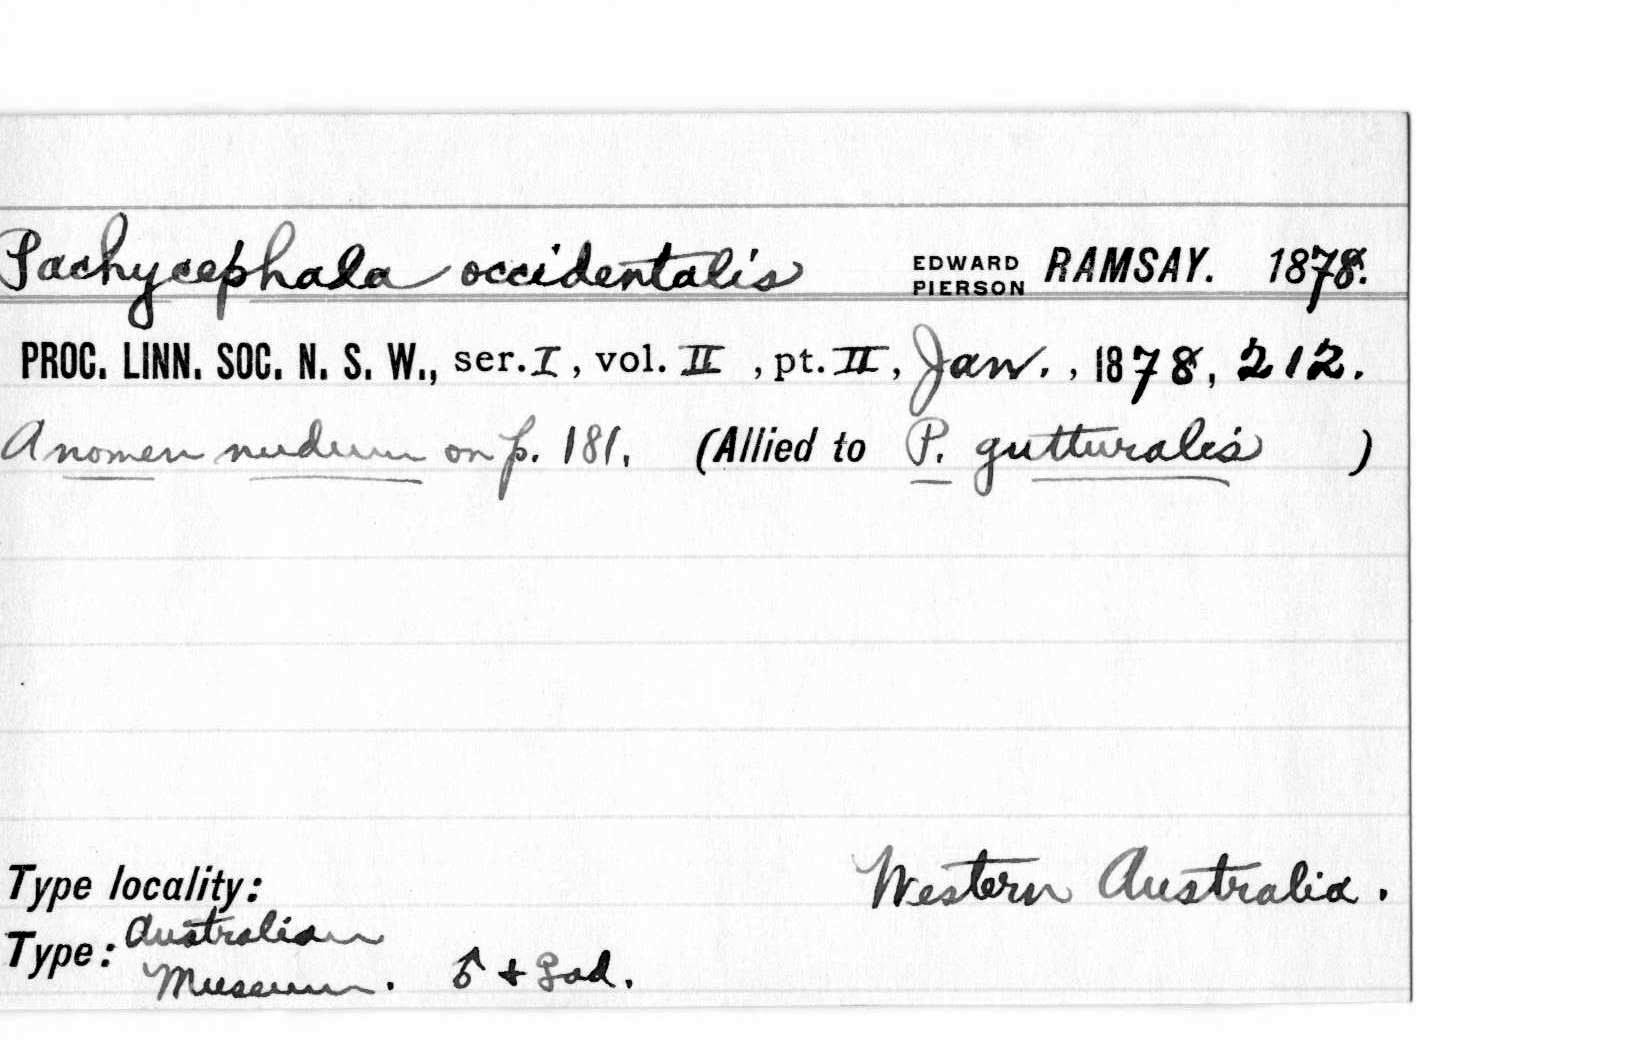 Pachycephala occidentalis EDWARD PIERSON RAMSAY. 1878.
PROC. LINN. SOC. N. S. W., ser. I, vol. II, pt. II, Jan., 1878, 212.
A nomen nudum on p. 181. (Allied to P. gutturalis )
Type locality: Western Australia.
Type: Australian
Museum. ♂ + ♀ ad.